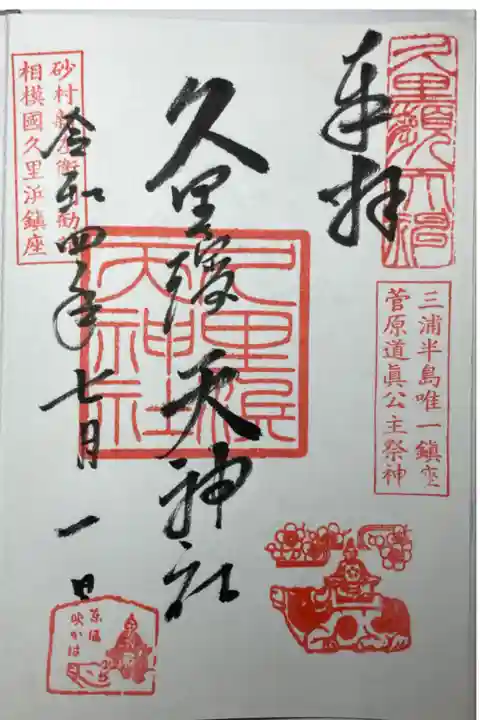 奉拝
三浦半島唯一鎮座
菅原道眞公主祭神
久里濱天神社
久里濱
天神社
砂村新左衛門勧
相模國久里浜鎮座
令和四年七月一日